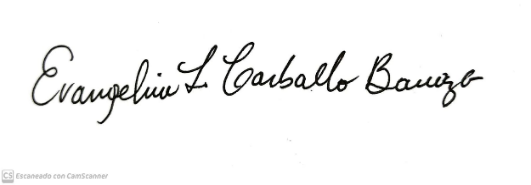 Evangelina L. Carballo Barraza
CS Escaneado con CamScanner